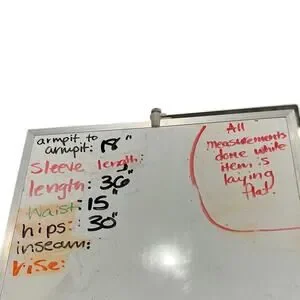 armpit to
armpit: 19"
sleeve length:
length: 36"
waist: 15"
hips: 30"
inseam:
rise:
All
measurements
done while
item is
laying
flat.